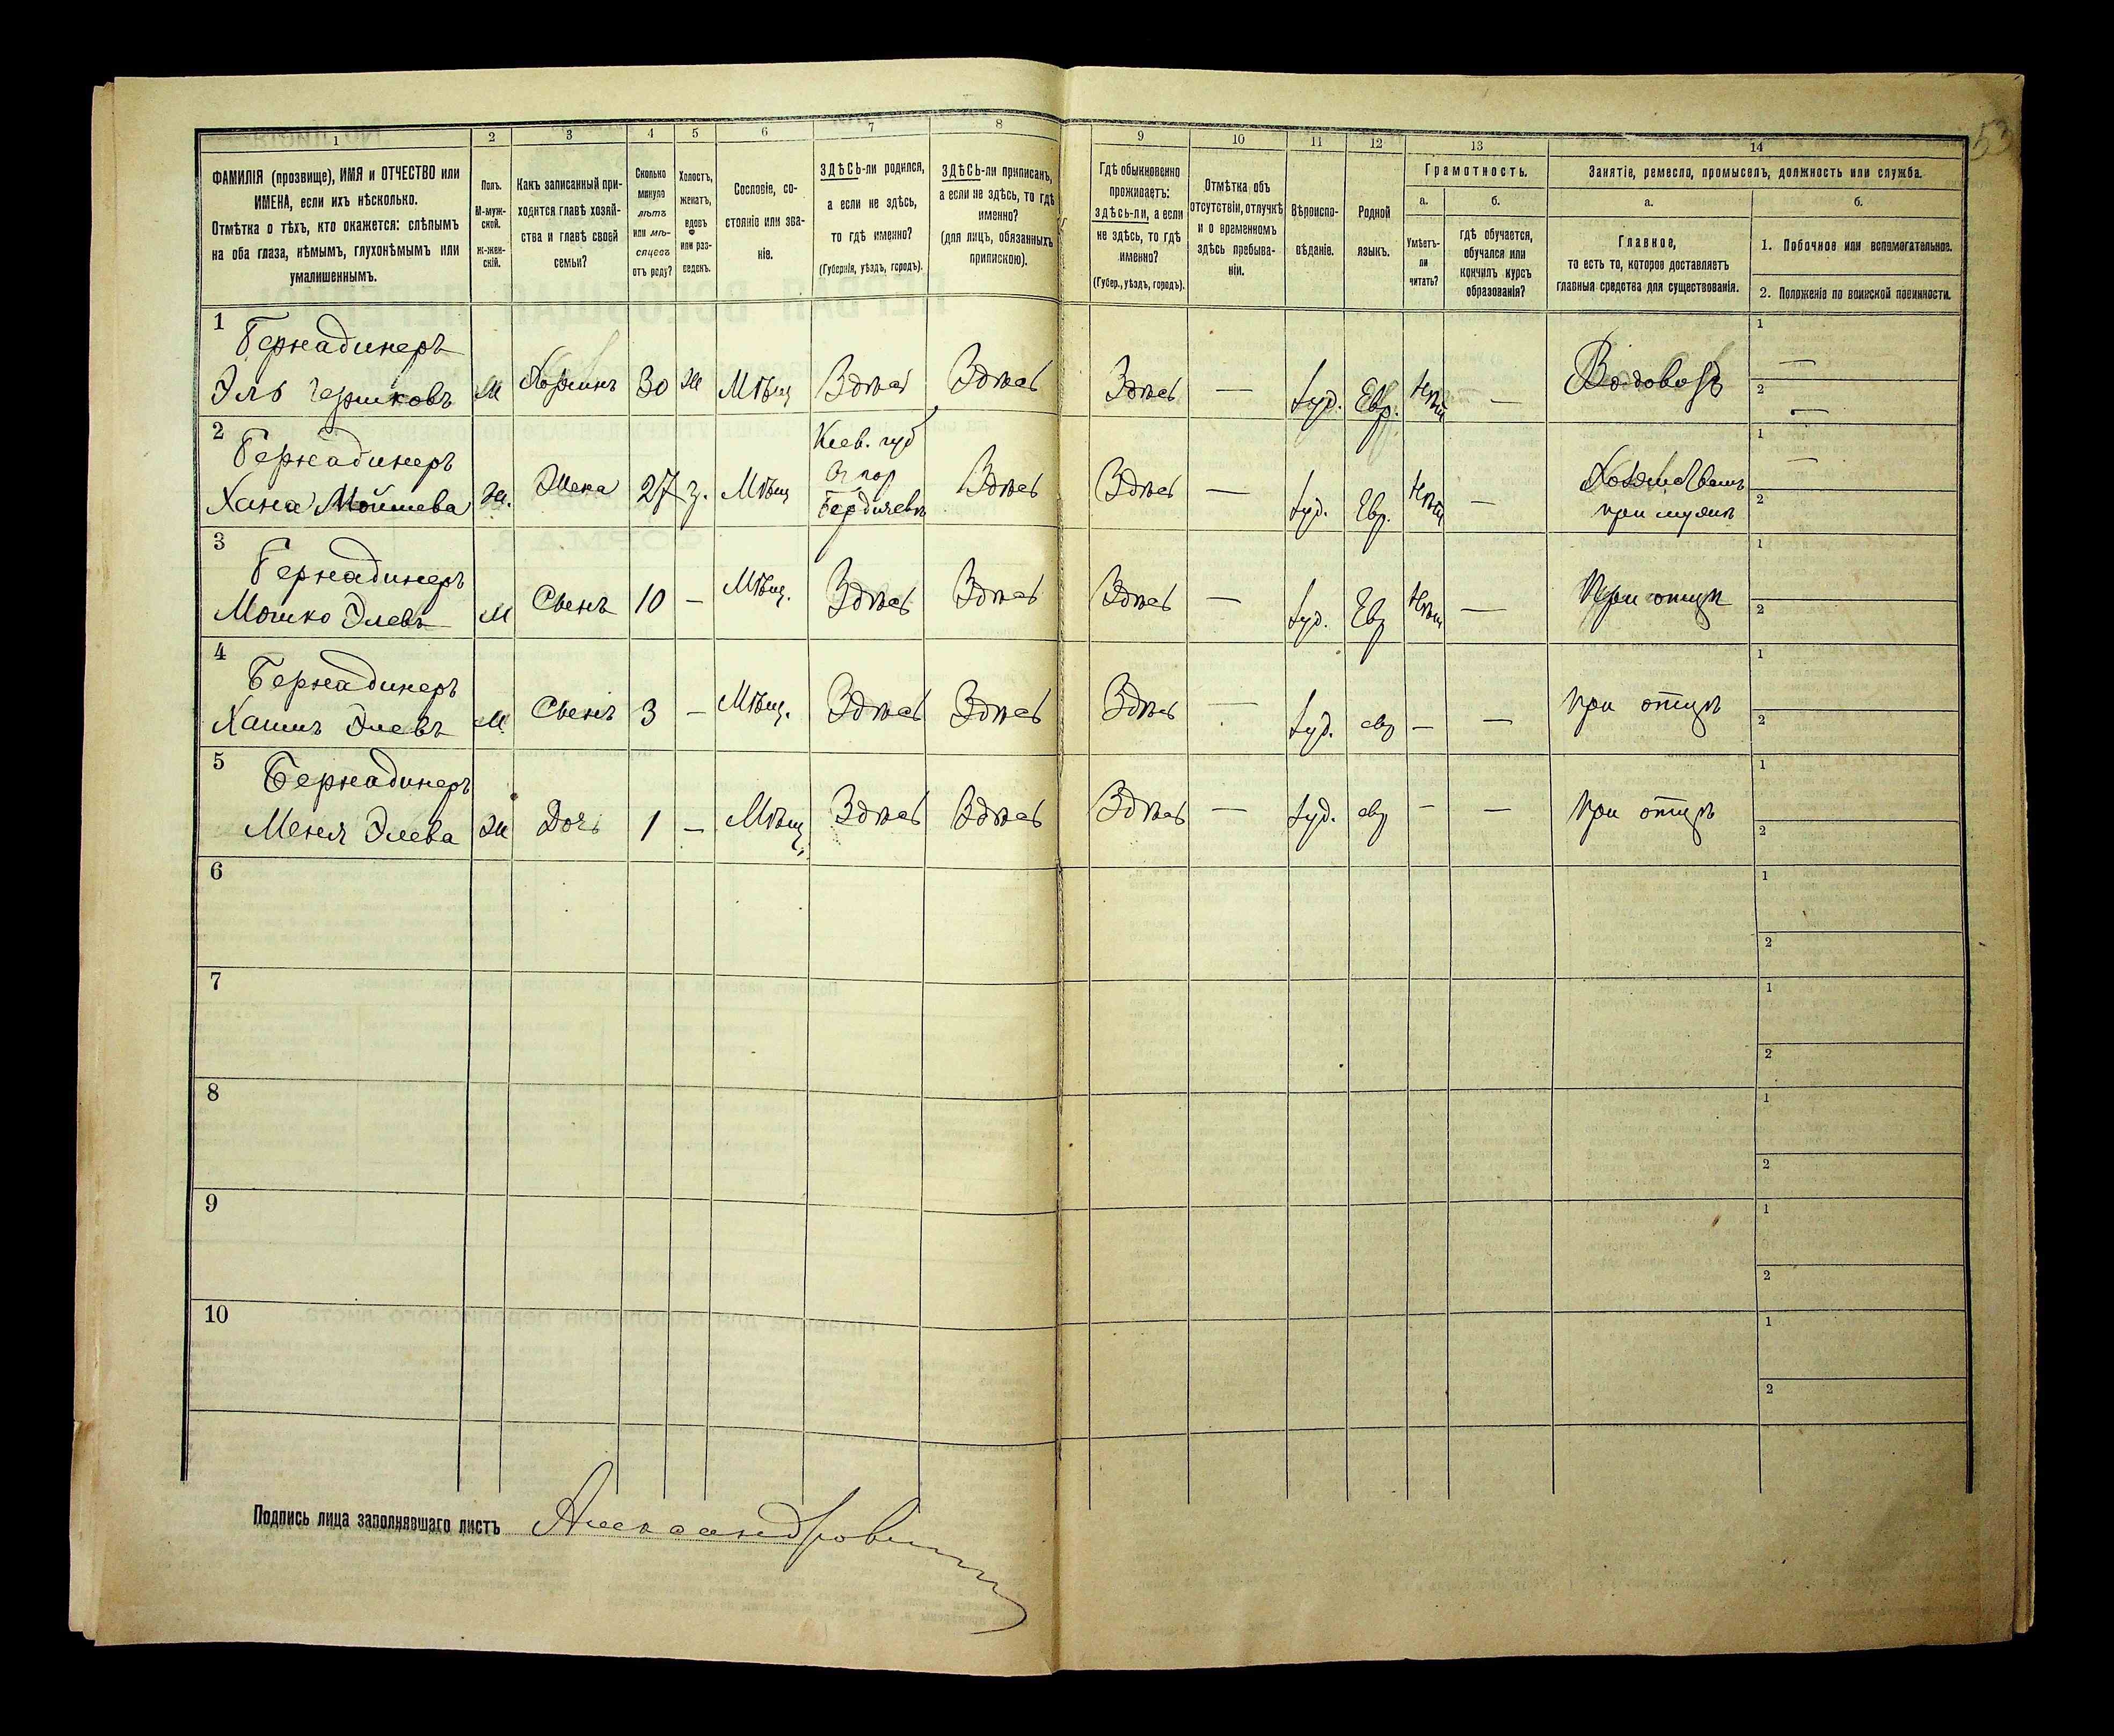 53
1 2 3 4 5 6 7 8 9 10 11 12 13 14
ФАМИЛІЯ (прозвище), ИМЯ и ОТЧЕСТВО или
ИМЕНА, если ихъ нѣсколько.
Отмѣтка о тѣхъ, кто окажется: слѣпымъ
на оба глаза, нѣмымъ, глухонѣмымъ или
умалишеннымъ.
Полъ.
М-муж-
ской.
Ж-жен-
скій.
Какъ записанный при-
ходится главѣ хозяй-
ства и главѣ своей
семьи?
Сколько
минуло
лѣтъ
или мѣ-
сяцевъ
отъ роду?
Холостъ,
женатъ,
вдовъ
или раз-
веденъ.
Сословіе, со-
стояніе или зва-
ніе.
ЗДѢСЬ-ли родился,
а если не здѣсь,
то гдѣ именно?
(Губернія, уѣздъ, городъ).
ЗДѢСЬ-ли приписанъ,
а если не здѣсь, то гдѣ
именно?
(для лицъ, обязанныхъ
припискою).
Гдѣ обыкновенно
проживаетъ:
ЗДѢСЬ-ли, а если
не здѣсь, то гдѣ
именно?
(Губер., уѣздъ, городъ).
Отмѣтка объ
отсутствіи, отлучкѣ
и о временномъ
здѣсь пребыва-
ніи.
Вѣроиспо-
вѣданіе.
Родной
языкъ.
Грамотность.
а.
Умѣетъ-
ли
читать?
б.
гдѣ обучается,
обучался или
кончилъ курсъ
образованія?
Занятіе, ремесло, промыселъ, должность или служба.
а.
Главное,
то есть то, которое доставляетъ
главныя средства для существованія.
б.
1. Побочное или вспомогательное.
2. Положеніе по воинской повинности.
1 Бернадинеръ
Эль Гершковъ М Хозяинъ 30 Ж Мѣщ Здѣсь Здѣсь Здѣсь — Іуд. Евр. Нѣт — Водовозъ 1 — 2 —
2 Бернадинеръ
Хана Мойшева Ж. Жена 27 з. Мѣщ Кіев. губ
Бердичевъ Здѣсь Здѣсь — Іуд. Евр. Нѣт —
при мужѣ 1 — 2
3 Бернадинеръ
Мошко Элевъ М Сынъ 10 — Мѣщ. Здѣсь Здѣсь Здѣсь — Іуд. Евр Нѣт — При отцѣ 1 2
4 Бернадинеръ
Хаимъ Элевъ М Сынъ 3 — Мѣщ. Здѣсь Здѣсь Здѣсь — Іуд. евр — — При отцѣ 1 2
5 Бернадинеръ
Меня Элева Ж Дочь 1 — Мѣщ, Здѣсь Здѣсь Здѣсь — Іуд. евр — — При отцѣ 1 2
6 1 2
7 1 2
8 1 2
9 1 2
10 1 2
Подпись лица заполнявшаго листъ